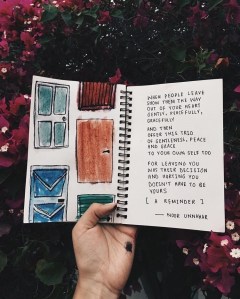 WHEN PEOPLE LEAVE
SHOW THEM THE WAY
OUT OF YOUR HEART
GENTLY, PEACEFULLY,
GRACEFULLY
AND THEN
OFFER THIS TRIO
OF GENTLENESS, PEACE
AND GRACE
TO YOUR OWN SELF TOO
FOR LEAVING YOU
WAS THEIR DECISION
AND HURTING YOU
DOESN'T HAVE TO BE
YOURS
[ A REMINDER ]
— NOOR UNNAHAR